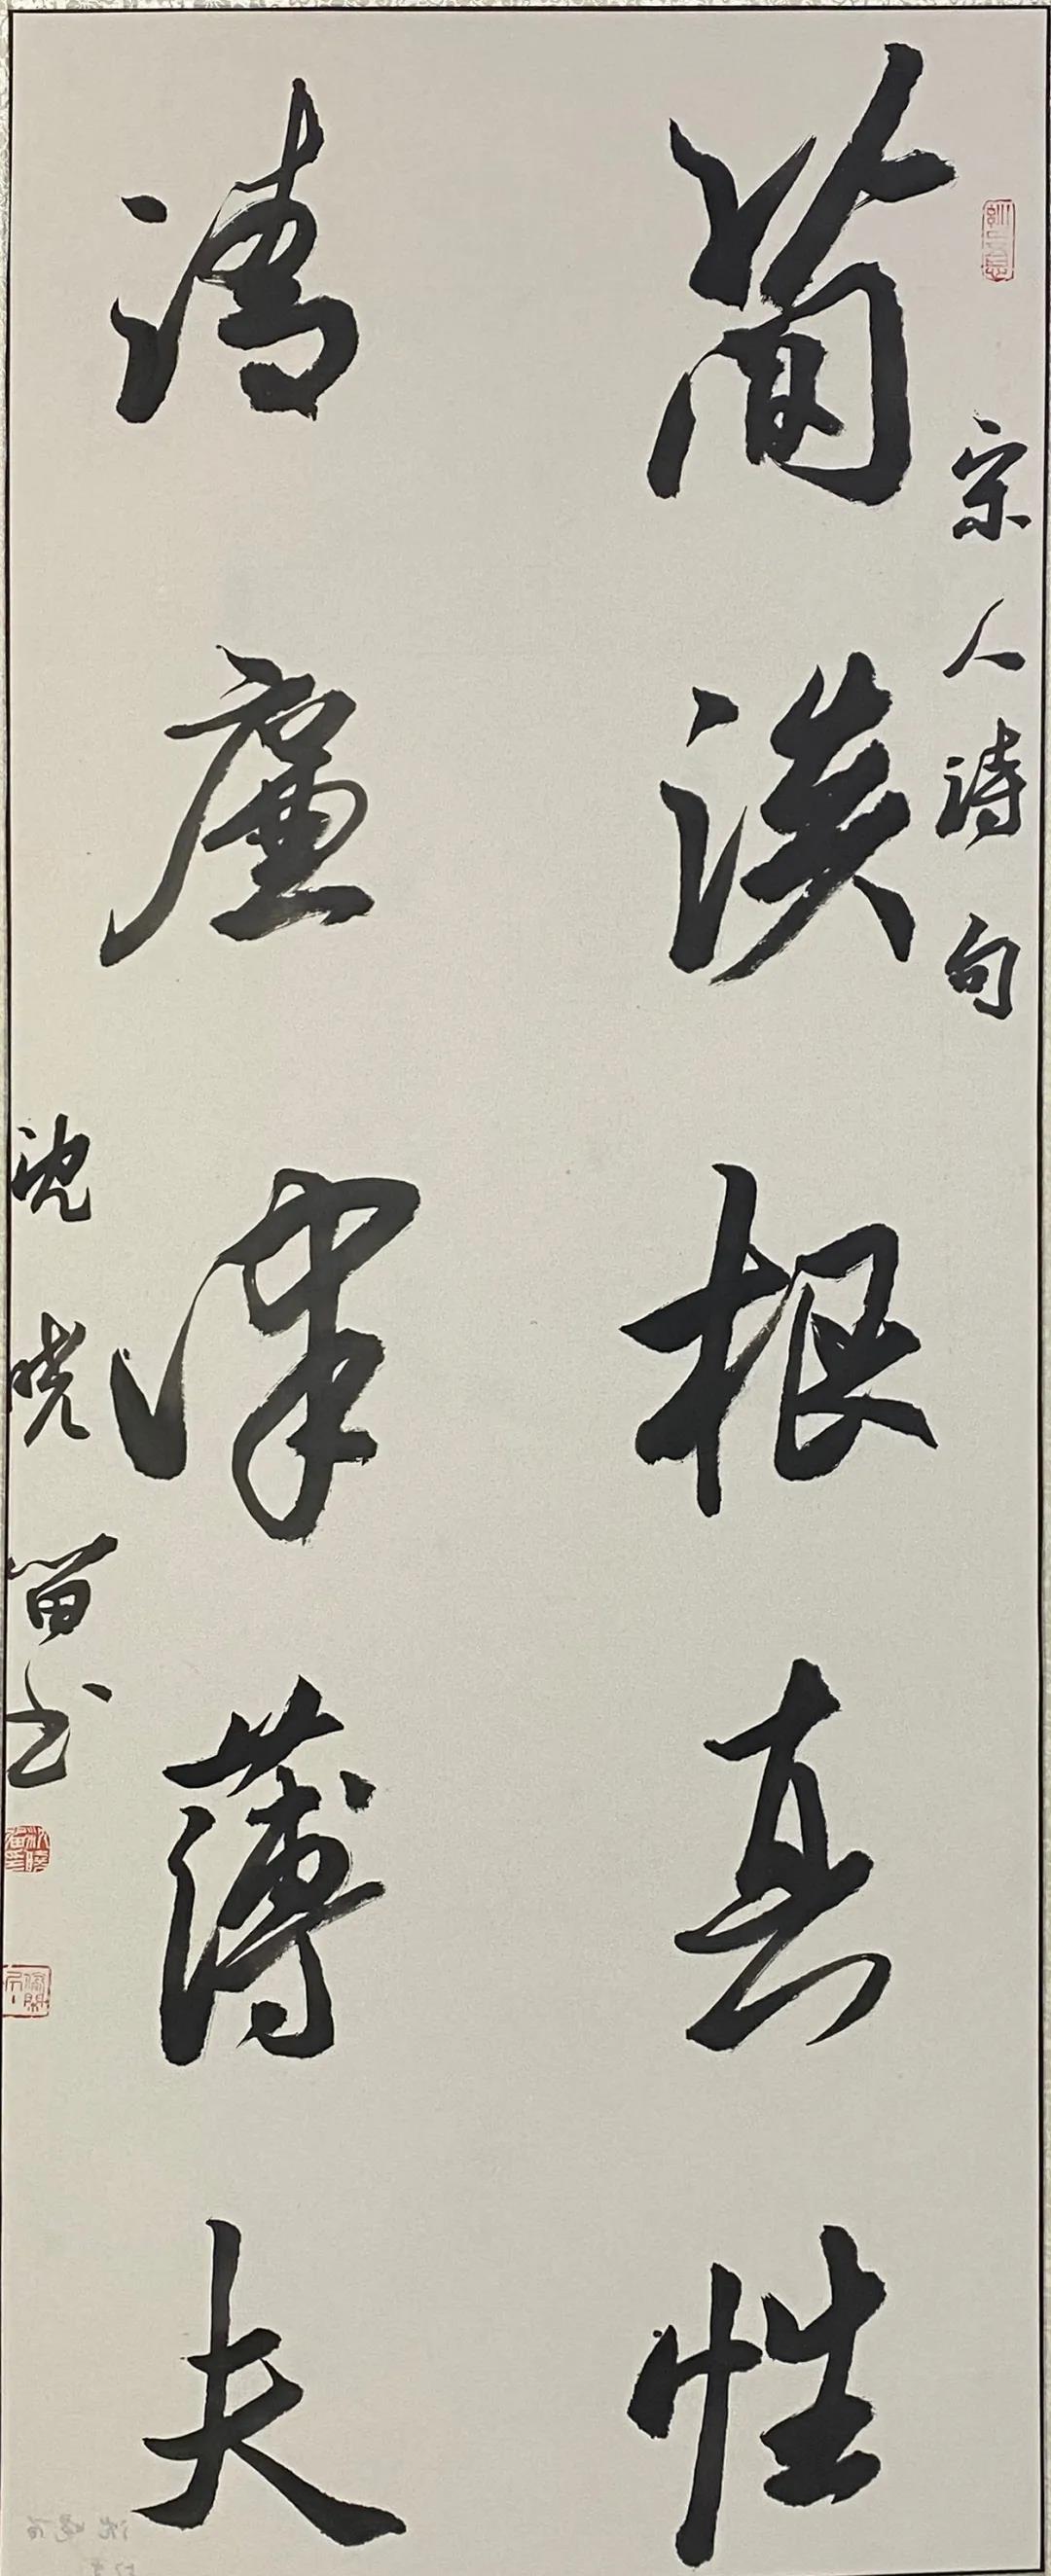 宋人詩句
簡淡根真性
清廉律薄夫
沈曉苗书